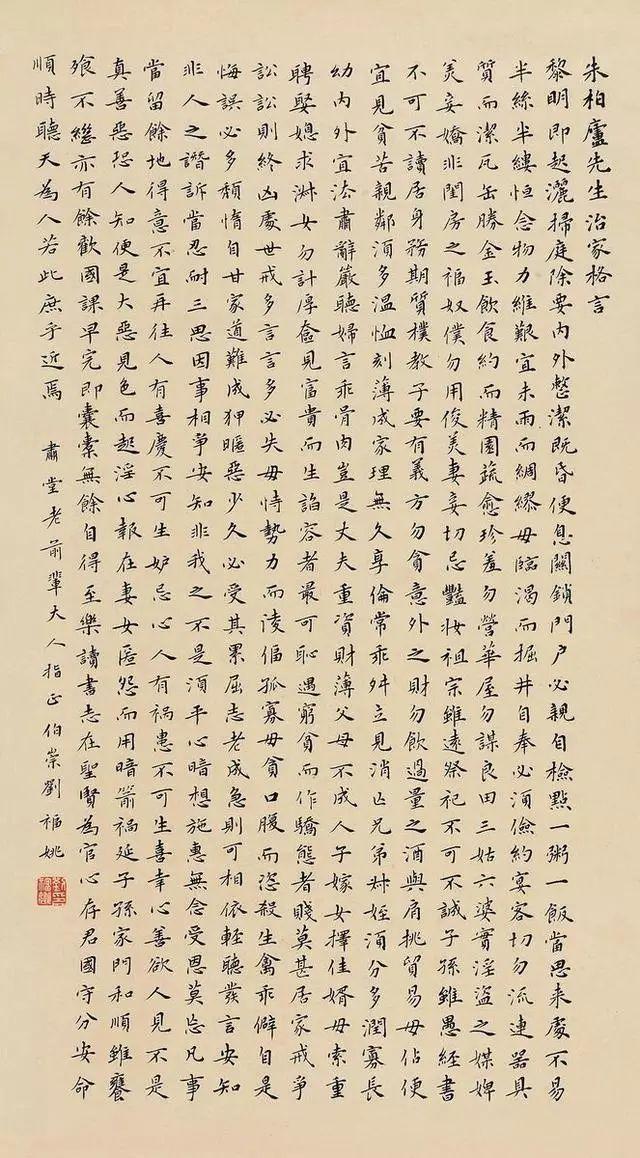 朱柏廬先生治家格言
黎明即起灑掃庭除要內外整潔既昏便息關鎖門戶必親自檢點一粥一飯當思来處不易
半絲半縷恒念物力維艱宜未雨而綢繆毋臨渴而掘井自奉必須儉約宴客切勿流連器具
質而潔瓦缶勝金玉飲食約而精園蔬愈珍羞勿營華屋勿謀良田三姑六婆實淫盜之媒婢
美妾嬌非閨房之福奴僕勿用俊美妻妾切忌豔妝祖宗雖遠祭祀不可不誠子孫雖愚經書
不可不讀居身務期質樸教子要有義方勿貪意外之財勿飲過量之酒與肩挑貿易毋佔便
宜見貧苦親鄰須多溫恤刻薄成家理無久享倫常乖舛立見消亡兄弟叔姪須分多潤寡長
幼內外宜法肅辭嚴聽婦言乖骨肉豈是丈夫重資財薄父母不成人子嫁女擇佳婿毋索重
聘娶媳求淑女勿計厚奩見富貴而生諂容者最可恥遇窮貧而作驕態者賤莫甚居家戒爭
訟訟則終凶處世戒多言言多必失毋恃勢力而凌偪孤寡毋貪口腹而恣殺生禽乖僻自是
悔誤必多頹惰自甘家道難成狎暱惡少久必受其累屈志老成急則可相依輕聽發言安知
非人之譖訴當忍耐三思因事相爭安知非我之不是須平心暗想施惠無念受恩莫忘凡事
當留餘地得意不宜再往人有喜慶不可生妒忌心人有禍患不可生喜幸心善欲人見不是
真善惡恐人知便是大惡見色而起淫心報在妻女匿怨而用暗箭禍延子孫家門和順雖饔
飧不繼亦有餘歡國課早完即囊橐無餘自得至樂讀書志在聖賢為官心存君國守分安命
順時聽天為人若此庶乎近焉 肅堂老前輩大人指正伯崇劉福姚